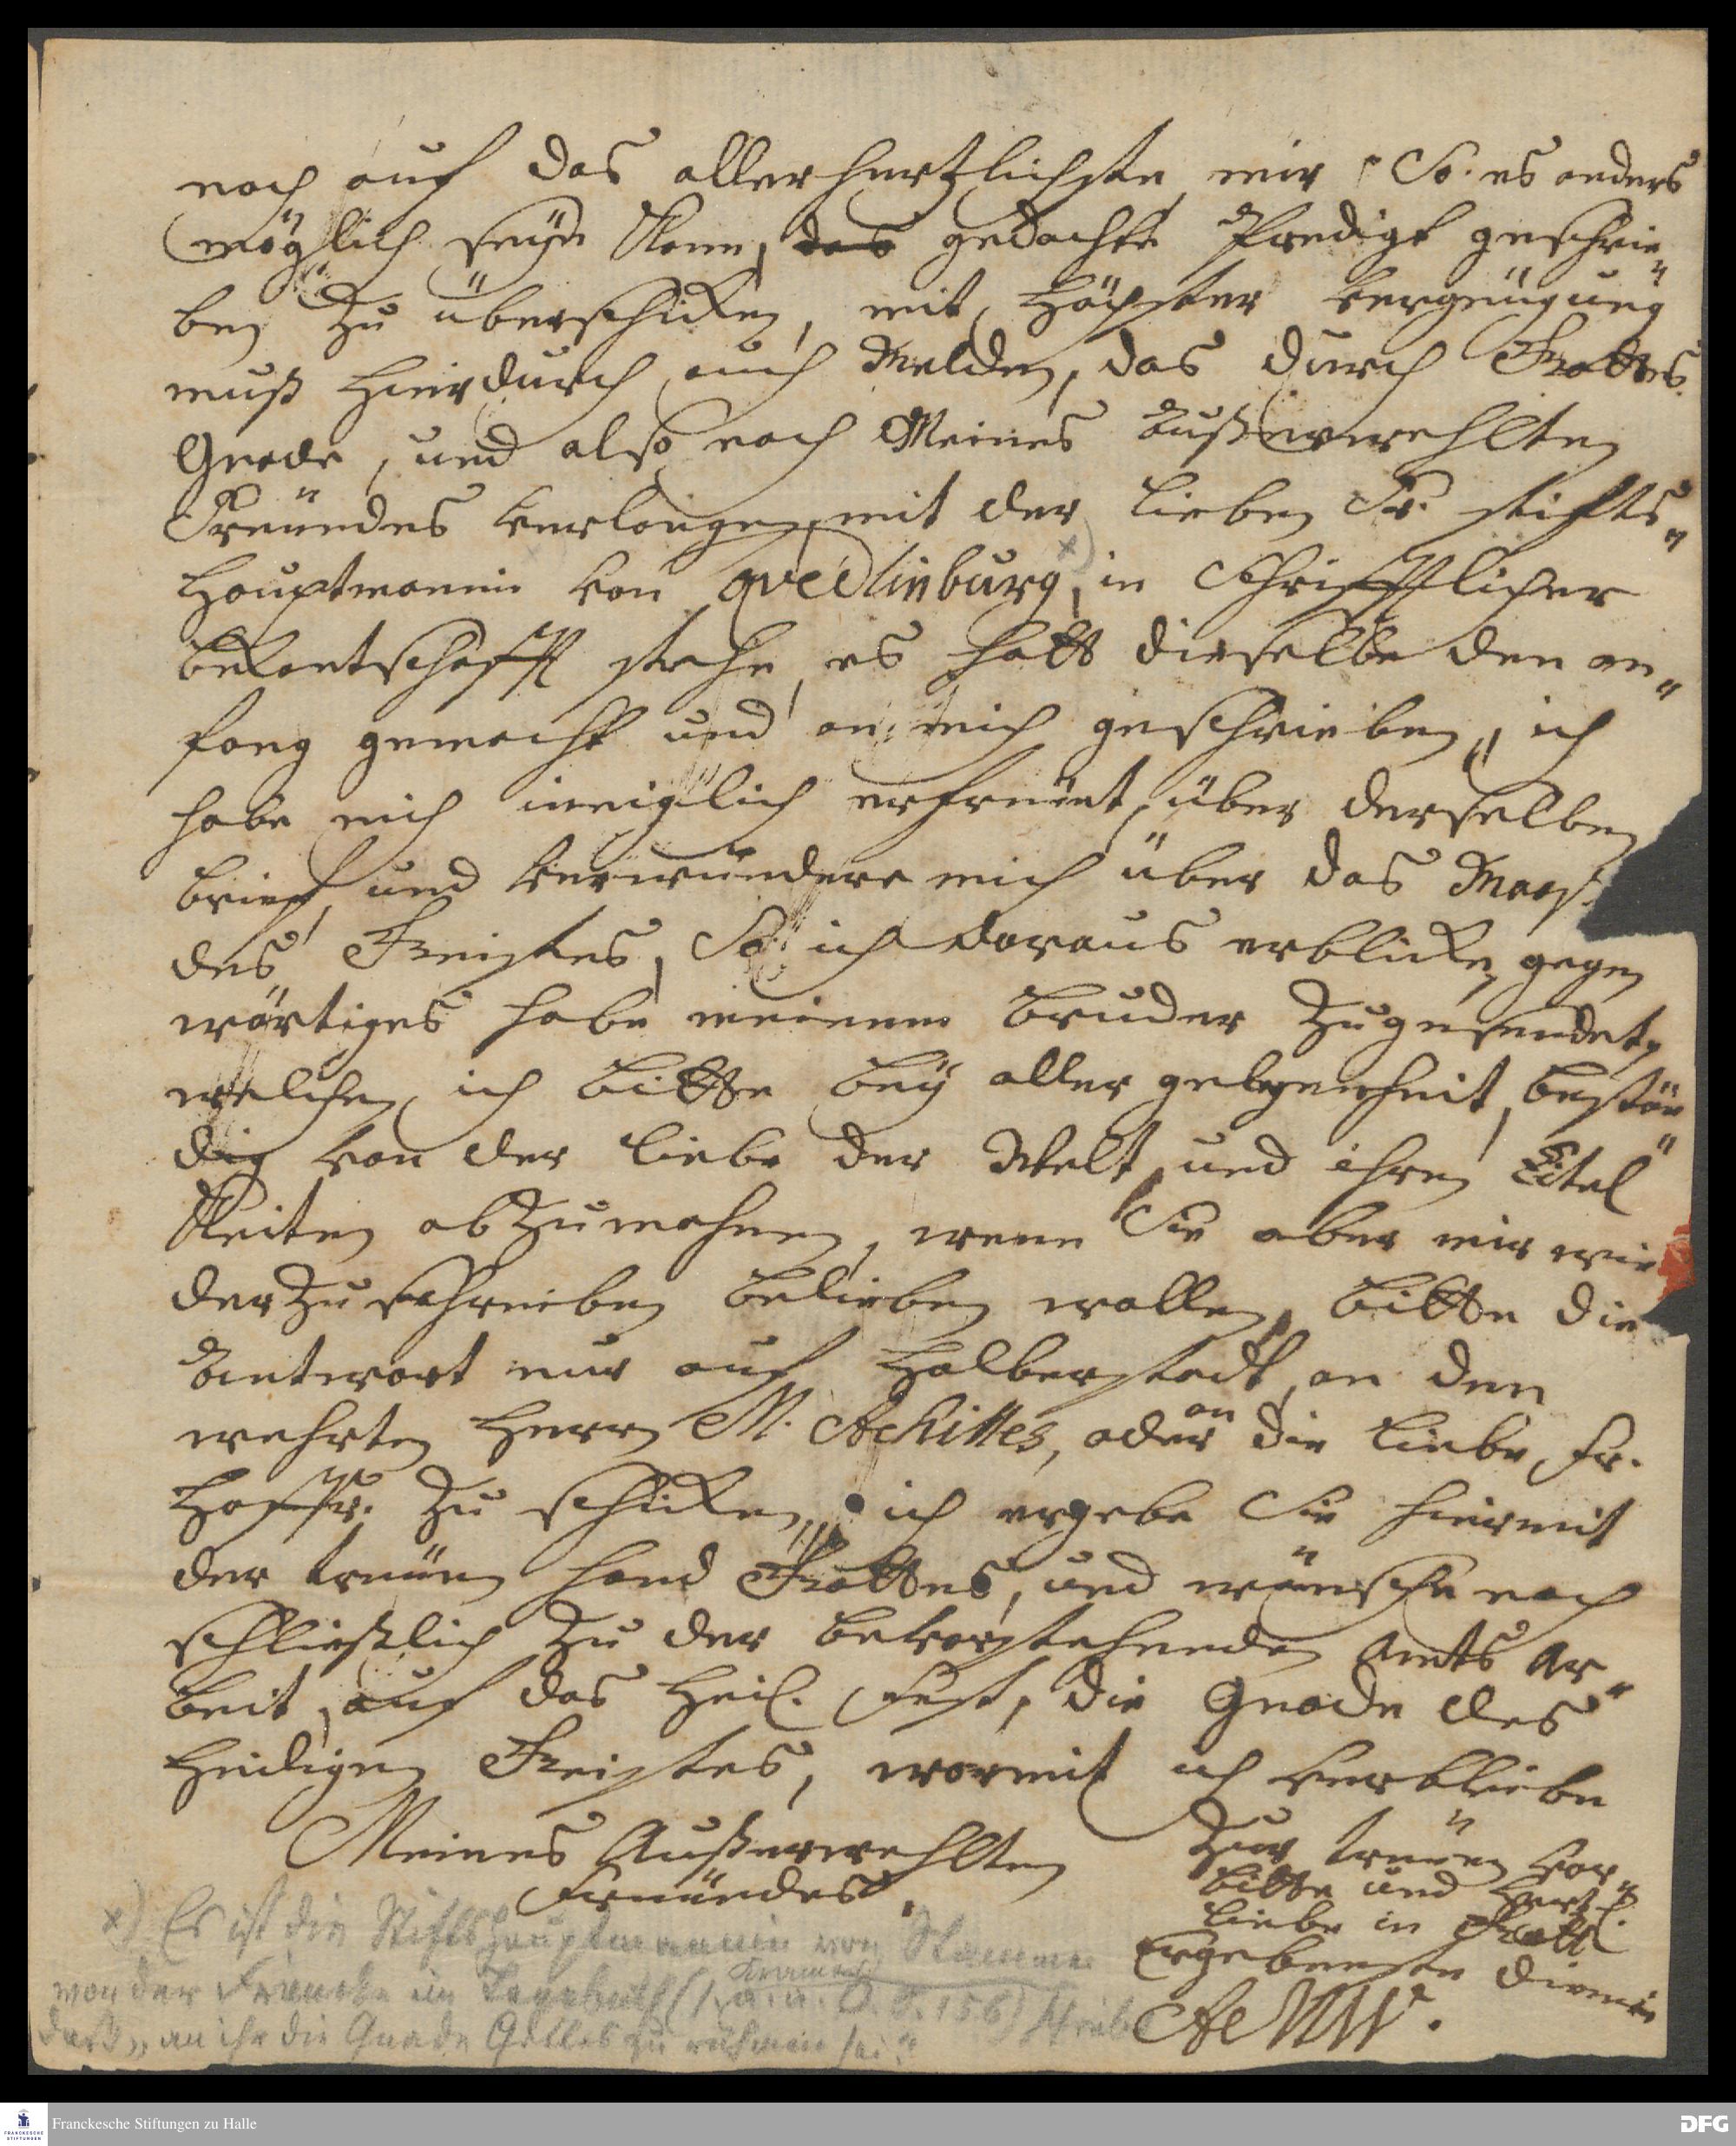 noch auf das allerhertzlichste, mir, So. es anders
möglich seÿn Kann, das gedachte Predigt geschrie„
ben zu überschicken, mit höchster vergnügung
muß hierdurch auch Melden, das durch Gottes
Gnade, und also nach Meines Außerwehlten
Freündes verlangen, mit der lieben Fr. stiffts„
Hauptmannin von Qvedlinburg, in Schrifftlicher
bekantschafft stehe, es hatt dieselbe den an„
fang gemacht und an mich geschrieben, ich
habe mich inniglich erfreüet, über derselben
brieff, und verwundere mich über das Maas
des Geistes, So ich daraus erblicke, gegen
wärtiges habe meinem Bruder zugesendet,
welchen ich bitte beÿ aller gelegenheit, bestän
dig von der liebe der Welt, und ihren Eitel„
Keiten abzumahnen, wenn Sie aber mir wie
der zu schreiben belieben wollen, bitte die
Antwort nur auf Halberstadt, an den
wehrten Herrn M. Achilles, oder an die liebe, Fr.
Hoffr. zu schicken, ich ergebe Sie hiermit
der treüen hand Gottes, und wünsche noch
schließlich zu der bevorstehenden Amts Ar„
beit, auf das Heil. Fest, die Gnade des
Heiligen Geistes, wormit ich verbleibe
Meines Außerwehlten
Freündes.
Zur treüen vor„
bitte und Hertzl.
liebe in Gott
Ergebenste Dienerin
AeMW.
x) Es ist die Stiftshauptmannin von Stammer
von der Francke im Tagebuch (Kramer a. a. O. S. 156) schreibt
daß „an ihr die Gnade Gottes zu rühmen sei."
Franckesche Stiftungen zu Halle
FRANCKESCHE
STIFTUNGEN
DFG